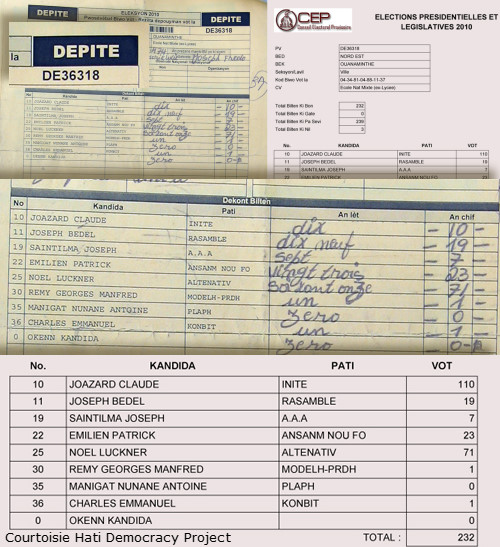 ELEKSYON 2010
DEPITE
DE36318
la
DEPITE
DE36318
OUANAMINTHE
CEP
Conseil Electoral Provisoire
ELECTIONS PRESIDENTIELLES ET
LEGISLATIVES 2010
PV DE36318
BED NORD EST
BEK OUANAMINTHE
Seksyon/Lavil Ville
Kod Biwo Vot la 04-34-81-04-85-11-37
CV Ecole Nat Mixte (ex-Lycee)
Total Bilten Ki Bon 232
Total Bilten Ki Gate 0
Total Bilten Ki Ne Sevi 238
Total Bilten Ki 3
No. KANDIDA PATI VOT
10 JOAZARD CLAUDE INITE 110
11 JOSEPH BEDEL RASAMBLE 19
19 SAINTILMA JOSEPH A.A.A 7
22 EMILIEN PATRICK ANSANM NOU FO 23
Dekont Bilten
No Kandida Pati An lèt An chif
10 JOAZARD CLAUDE INITE dix - 10 -
11 JOSEPH BEDEL RASAMBLE dix neuf - 19 -
19 SAINTILMA JOSEPH A.A.A sept - 7 -
22 EMILIEN PATRICK ANSANM NOU FO vingt trois - 23 -
25 NOEL LUCKNER ALTENATIV soixant onze - 71 -
30 REMY GEORGES MANFRED MODELH-PRDH un - 1 -
35 MANIGAT NUNANE ANTOINE PLAPH zero - 0 -
36 CHARLES EMMANUEL KONBIT un - 1 -
0 OKENN KANDIDA zero - 0 -
No. KANDIDA PATI VOT
10 JOAZARD CLAUDE INITE 110
11 JOSEPH BEDEL RASAMBLE 19
19 SAINTILMA JOSEPH A.A.A 7
22 EMILIEN PATRICK ANSANM NOU FO 23
25 NOEL LUCKNER ALTENATIV 71
30 REMY GEORGES MANFRED MODELH-PRDH 1
35 MANIGAT NUNANE ANTOINE PLAPH 0
36 CHARLES EMMANUEL KONBIT 1
0 OKENN KANDIDA 0
TOTAL : 232
Courtoisie Hati Democracy Project